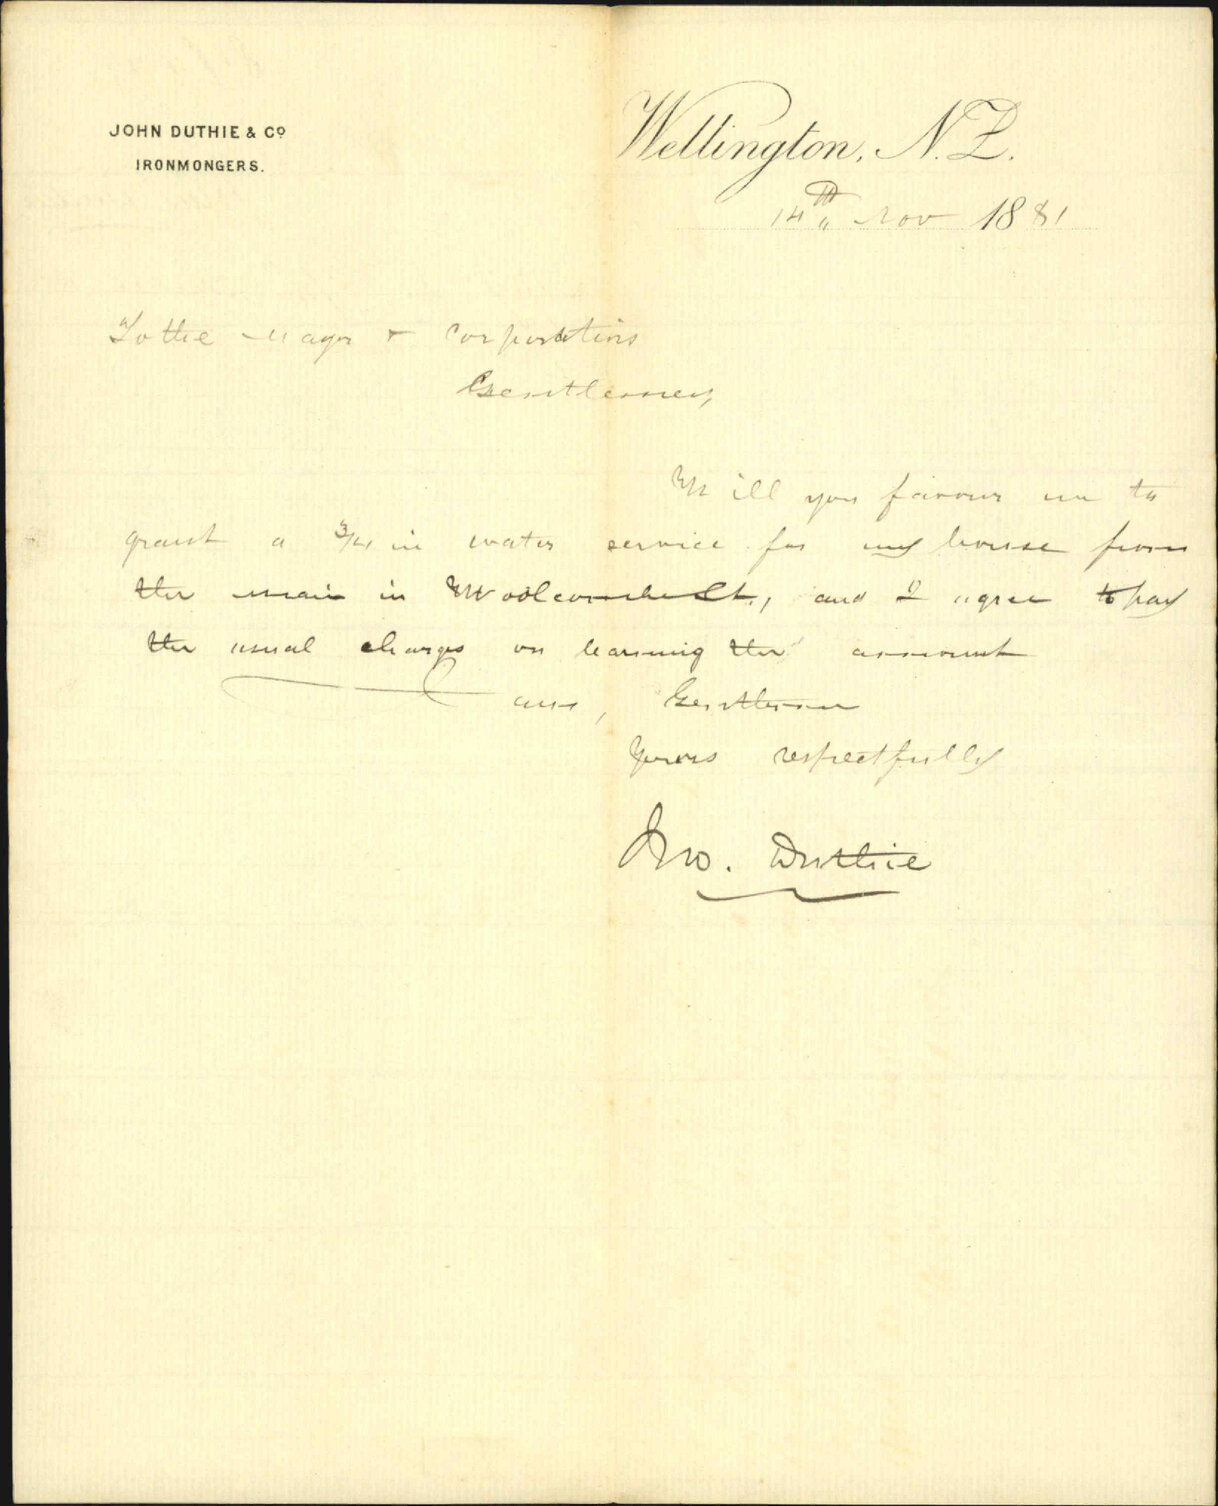 JOHN DUTHIE & Co
IRONMONGERS.
Wellington, N.Z.
14th Nov 1881
To the Mayor & Corporation
Gentlemen,
Will you favour me to
grant a 3/4 in water service for my house from
the main in Woolcombe St., and I agree to pay
the usual charges on learning the amount
am, Gentlemen
Yours respectfully
Jno. Duthie